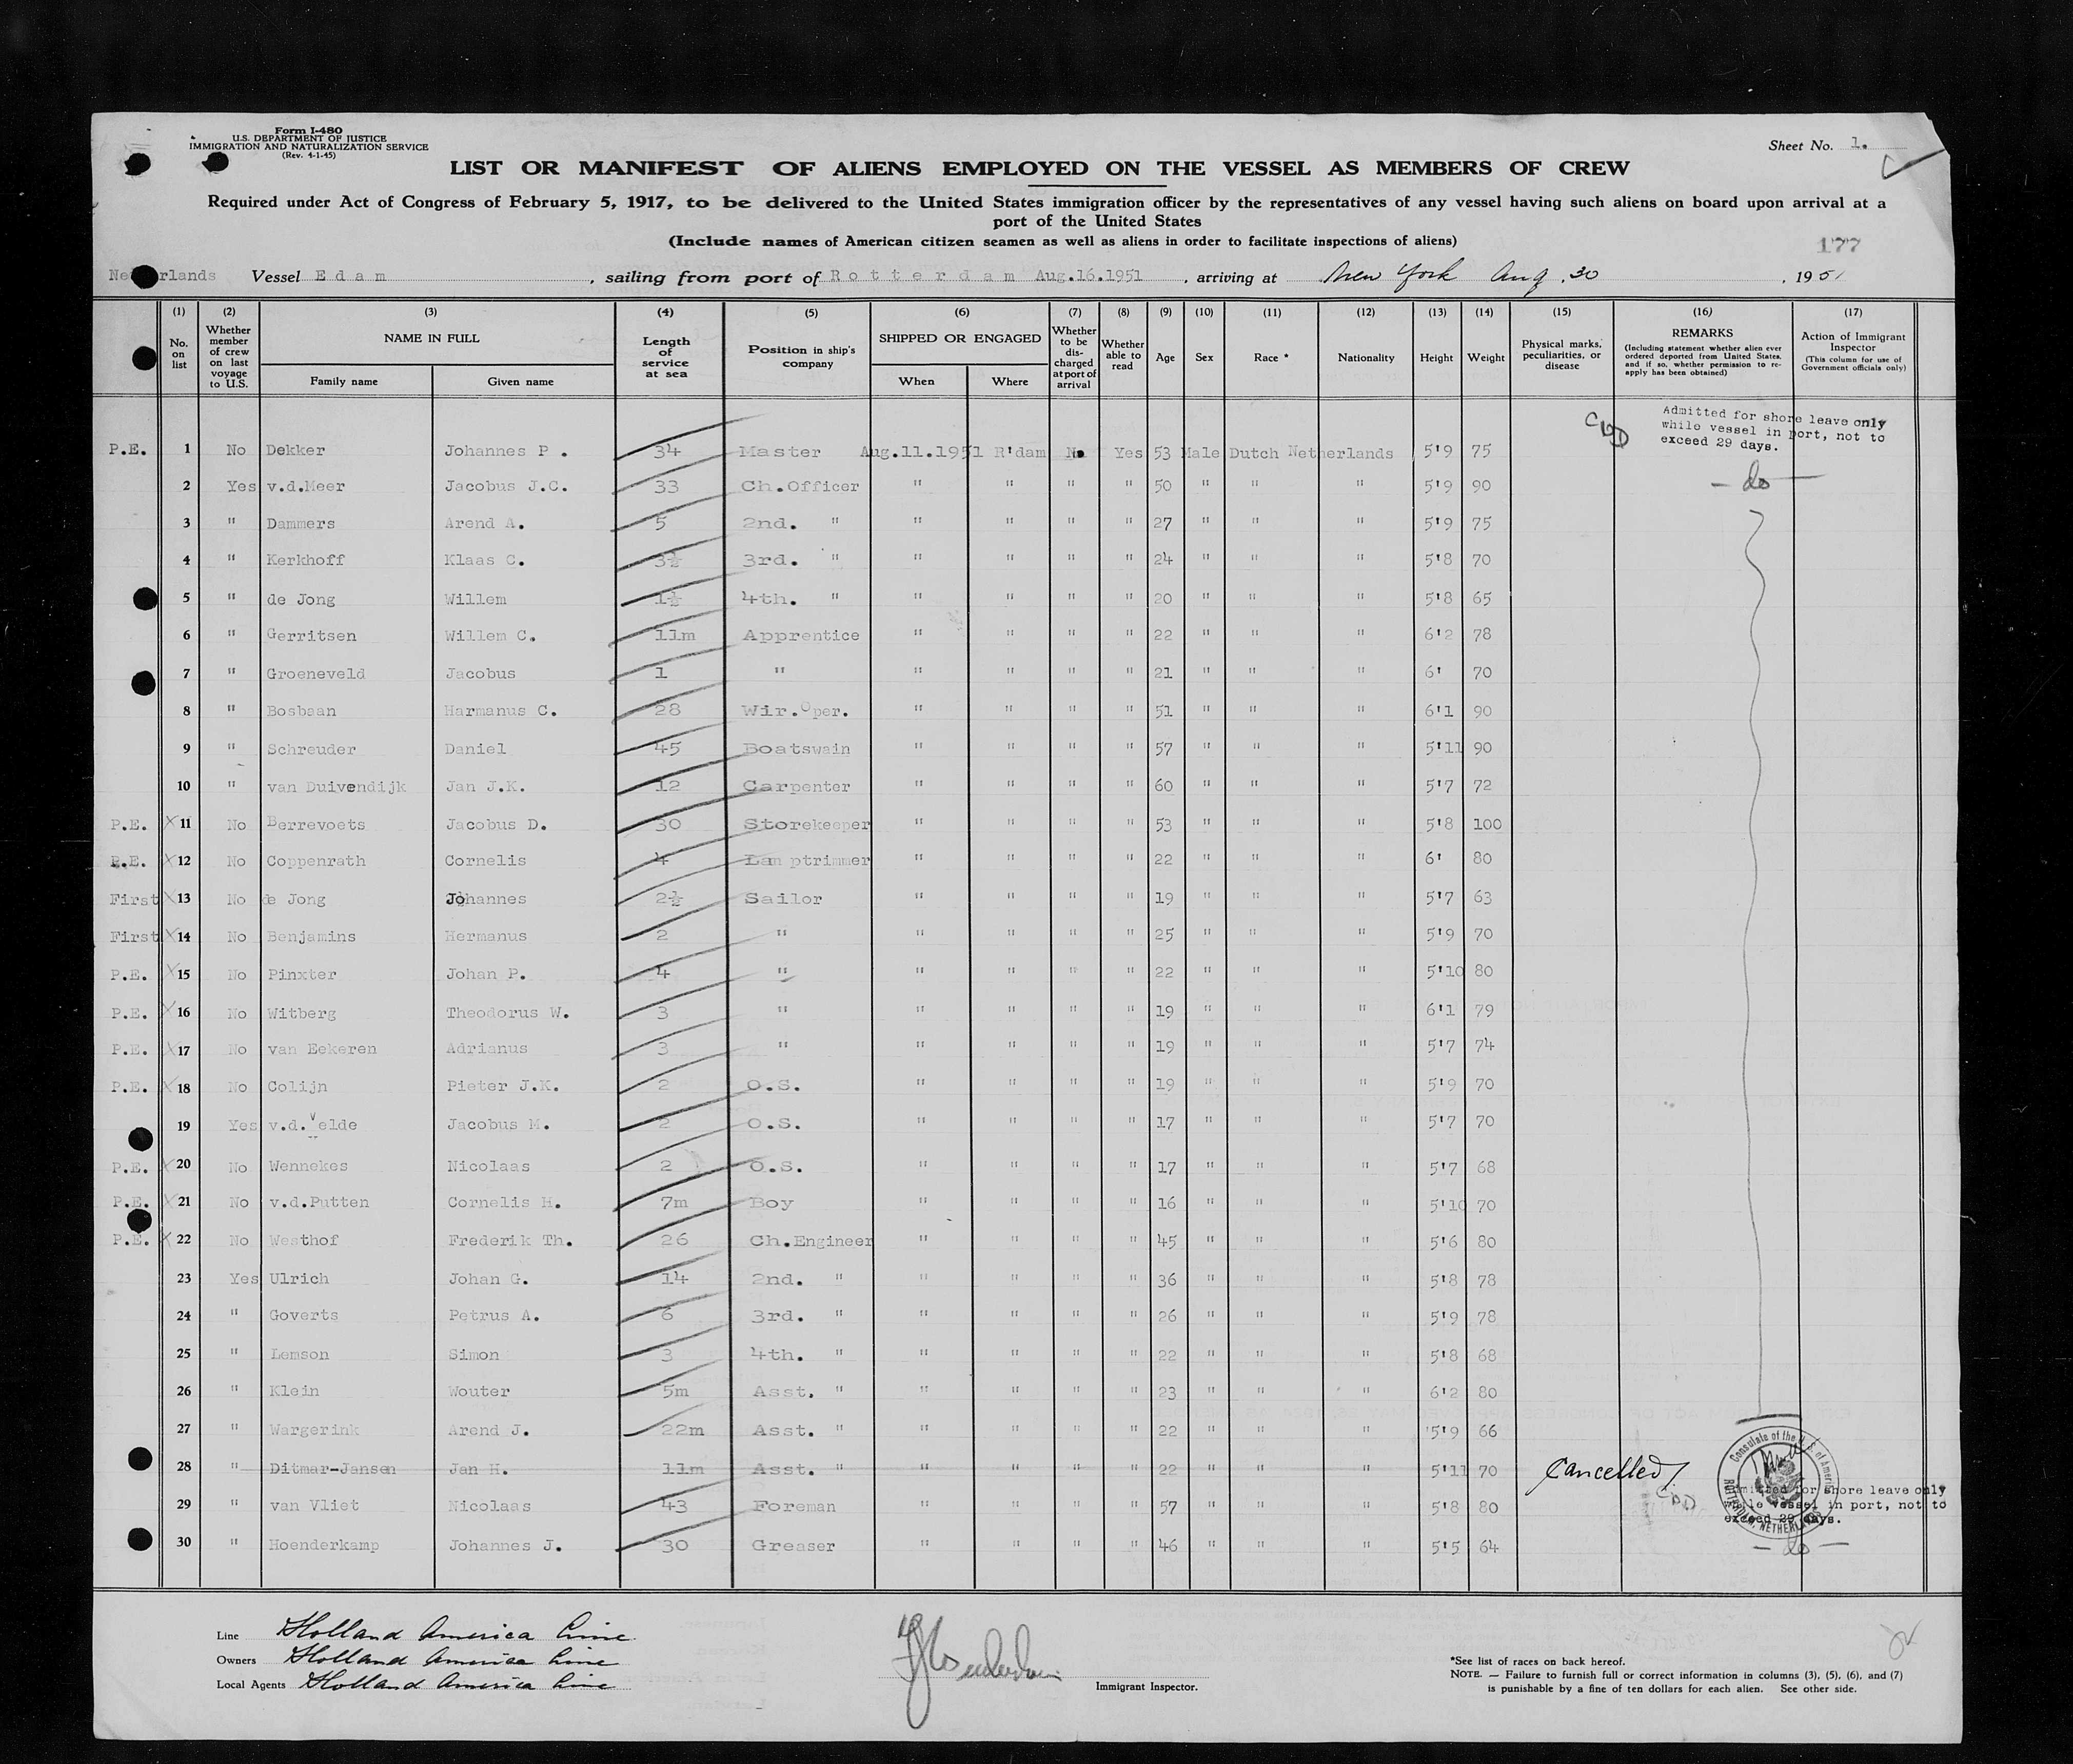 Form I-480
U.S. DEPARTMENT OF JUSTICE
IMMIGRATION AND NATURALIZATION SERVICE
(Rev. 4-1-45)
Sheet No. 1.
LIST OR MANIFEST OF ALIENS EMPLOYED ON THE VESSEL AS MEMBERS OF CREW
Required under Act of Congress of February 5, 1917, to be delivered to the United States immigration officer by the representatives of any vessel having such aliens on board upon arrival at a
port of the United States
(Include names of American citizen seamen as well as aliens in order to facilitate inspections of aliens)
177
Netherlands Vessel Edam, sailing from port of Rotterdam Aug.16.1951, arriving at New York Aug. 30, 1951
(1) (2) (3) (4) (5) (6) (7) (8) (9) (10) (11) (12) (13) (14) (15) (16) (17)
No. on list
Whether member of crew on last voyage to U.S.
NAME IN FULL
Family name Given name
Length of service at sea
Position in ship's company
SHIPPED OR ENGAGED
When Where
Whether to be discharged at port of arrival
Whether able to read
Age Sex Race * Nationality Height Weight
Physical marks, peculiarities, or disease
REMARKS
(Including statement whether alien ever ordered deported from United States, and if so, whether permission to reapply has been obtained)
Action of Immigrant Inspector
(This column for use of Government officials only)
Admitted for shore leave only
while vessel in port, not to
exceed 29 days.
P.E. 1 No Dekker Johannes P. 34 Master Aug.11.1951 R'dam No Yes 53 Male Dutch Netherlands 5'9 75
2 Yes v.d.Meer Jacobus J.C. 33 Ch.Officer " " " " 50 " " " 5'9 90 — do —
3 " Dammers Arend A. 5 2nd. " " " " " 27 " " " 5'9 75
4 " Kerkhoff Klaas C. 3½ 3rd. " " " " " 24 " " " 5'8 70
5 " de Jong Willem 1½ 4th. " " " " " 20 " " " 5'8 65
6 " Gerritsen Willem C. 11m Apprentice " " " " 22 " " " 6'2 78
7 " Groeneveld Jacobus 1 " " " " " 21 " " " 6' 70
8 " Bosbaan Harmanus C. 28 Wir.Oper. " " " " 51 " " " 6'1 90
9 " Schreuder Daniel 45 Boatswain " " " " 57 " " " 5'11 90
10 " van Duivendijk Jan J.K. 12 Carpenter " " " " 60 " " " 5'7 72
P.E. X 11 No Berrevoets Jacobus D. 30 Storekeeper " " " " 53 " " " 5'8 100
P.E. X 12 No Coppenrath Cornelis 4 Lamptrimmer " " " " 22 " " " 6' 80
First X 13 No de Jong Johannes 2½ Sailor " " " " 19 " " " 5'7 63
First X 14 No Benjamins Hermanus 2 " " " " " 25 " " " 5'9 70
P.E. X 15 No Pinxter Johan P. 4 " " " " " 22 " " " 5'10 80
P.E. X 16 No Witberg Theodorus W. 3 " " " " " 19 " " " 6'1 79
P.E. X 17 No van Eekeren Adrianus 3 " " " " " 19 " " " 5'7 74
P.E. X 18 No Colijn Pieter J.K. 2 O.S. " " " " 19 " " " 5'9 70
19 Yes v.d.Velde Jacobus M. 2 O.S. " " " " 17 " " " 5'7 70
P.E. X 20 No Wennekes Nicolaas 2 O.S. " " " " 17 " " " 5'7 68
P.E. X 21 No v.d.Putten Cornelis H. 7m Boy " " " " 16 " " " 5'10 70
P.E. X 22 No Westhof Frederik Th. 26 Ch.Engineer " " " " 45 " " " 5'6 80
23 Yes Ulrich Johan G. 14 2nd. " " " " " 36 " " " 5'8 78
24 " Goverts Petrus A. 6 3rd. " " " " " 26 " " " 5'9 78
25 " Lemson Simon 3 4th. " " " " " 22 " " " 5'8 68
26 " Klein Wouter 5m Asst. " " " " " 23 " " " 6'2 80
27 " Wargerink Arend J. 22m Asst. " " " " " 22 " " " 5'9 66
28 " Ditmar-Jansen Jan H. 11m Asst. " " " " " 22 " " " 5'11 70 Cancelled
Consulate of the U.S. of America
ROTTERDAM, NETHERLANDS
29 " van Vliet Nicolaas 43 Foreman " " " " 57 " " " 5'8 80
Admitted for shore leave only
while vessel in port, not to
exceed 29 days.
30 " Hoenderkamp Johannes J. 30 Greaser " " " " 46 " " " 5'5 64 — do —
Line Holland America Line
Owners Holland America Line
Local Agents Holland America Line
Immigrant Inspector.
*See list of races on back hereof.
NOTE. — Failure to furnish full or correct information in columns (3), (5), (6), and (7)
is punishable by a fine of ten dollars for each alien. See other side.